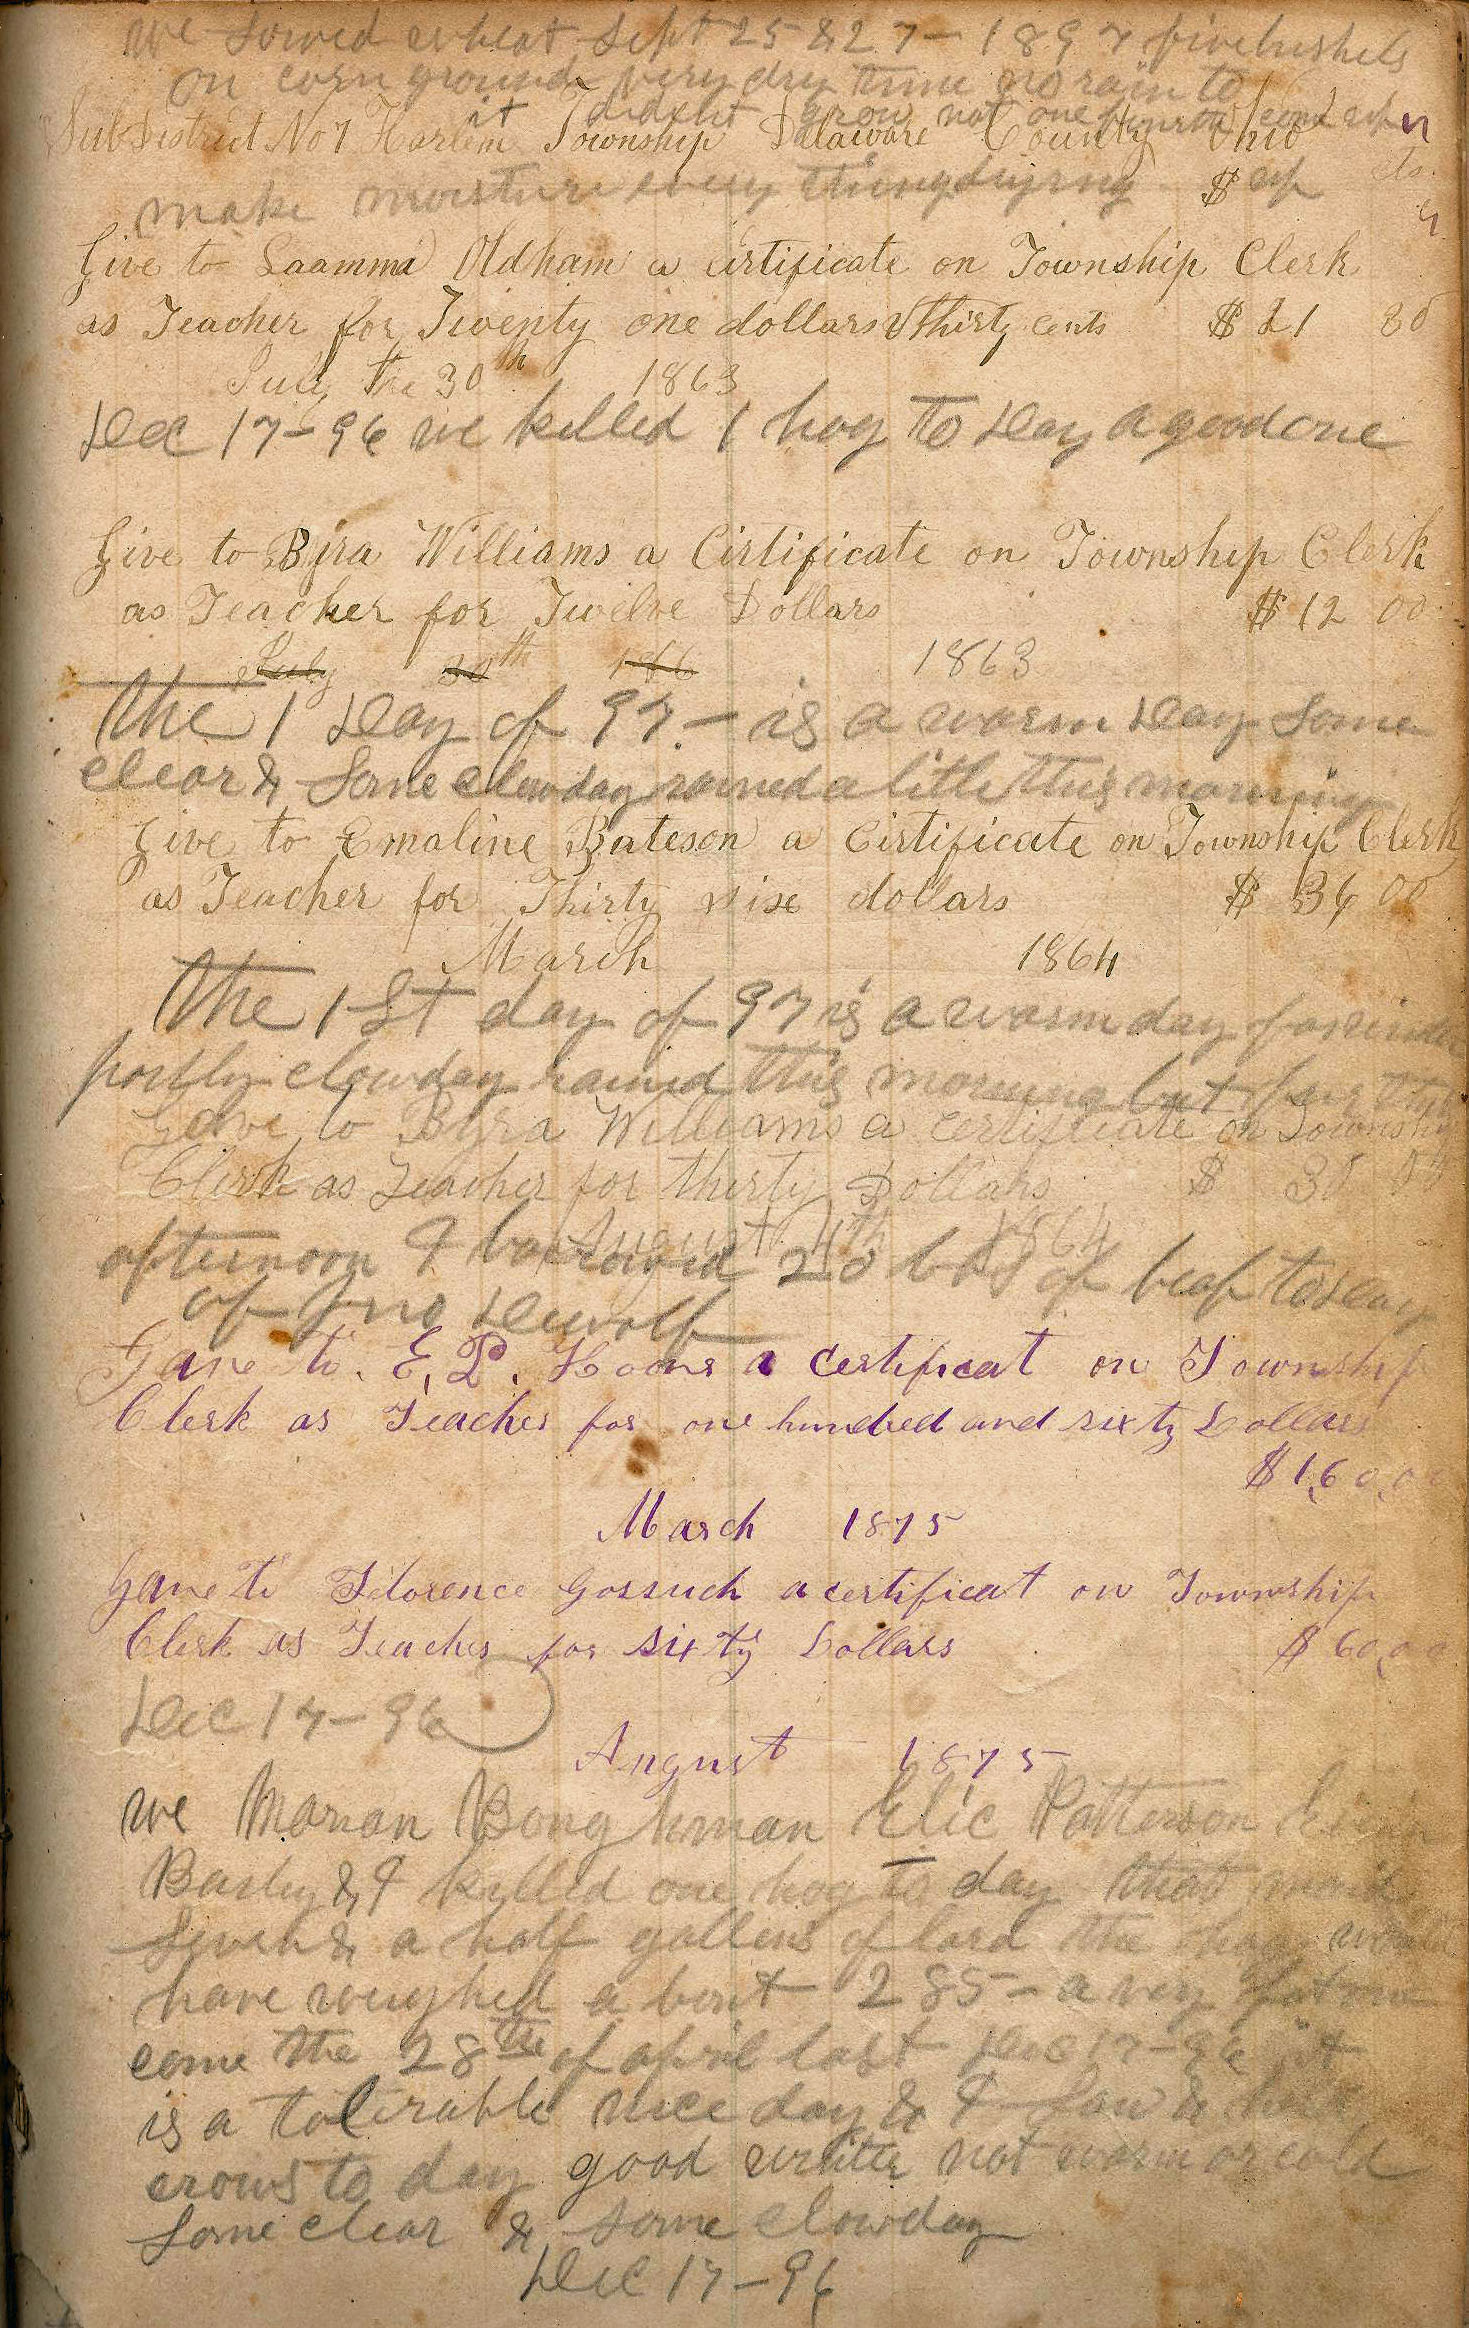 we sowed wheat Sept 25 & 27 - 1897 five bushels
on corn ground very dry time no rain to
it dident grow not one come up
Sub District No 7 Harlem Township Delaware County Ohio
make moisture every thing drying up $ cts.
Give to Laamma Oldham a Certificate on Township Clerk
as Teacher for Twenty one dollars & thirty cents $ 21 30
July the 30th 1863
Dec 17-96 we killed 1 hog To Day a good one
Give to Byra Williams a Certificate on Township Clerk
as Teacher for Twelve Dollars $ 12 00
July 30th 186 1863
the 1 Day of 97 - is a warm Day Some
clear & Some clowday rained a little this morning
Give to Emaline Bateson a Certificate on Township Clerk
as Teacher for Thirty six dollars $ 36 00
March 1864
The 1 St day of 97 is a warm day for
partly clowday rained this morning but
Gave to Byra Williams a Certificate on Township
Clerk as Teacher for thirty Dollars $ 30 00
August 4th 1864
afternoon I borrowed 20 lbs of beaf to Day
of Jno Dewolf
Gave to. E, P, Hoover a Certificat on Township
Clerk as Teacher for one hundred and sixty Dollars
$ 160,00
March 1875
Gave to Florence Gorsuch a certificat on Township
Clerk as Teacher for sixty Dollars $ 60,00
Dec 17-96
August 1875
we Marian Boughman Elic Patterson
& I killed one hog to day that
Seven & a half gallens of lard the hog would
have weighed a bout 285 - a very fat one
come the 28the of april last Dec 17-96 it
is a tolirable nice day & I Saw &
crows to day good writter not warm or cold
Some clear & some clowday
Dec 17-96